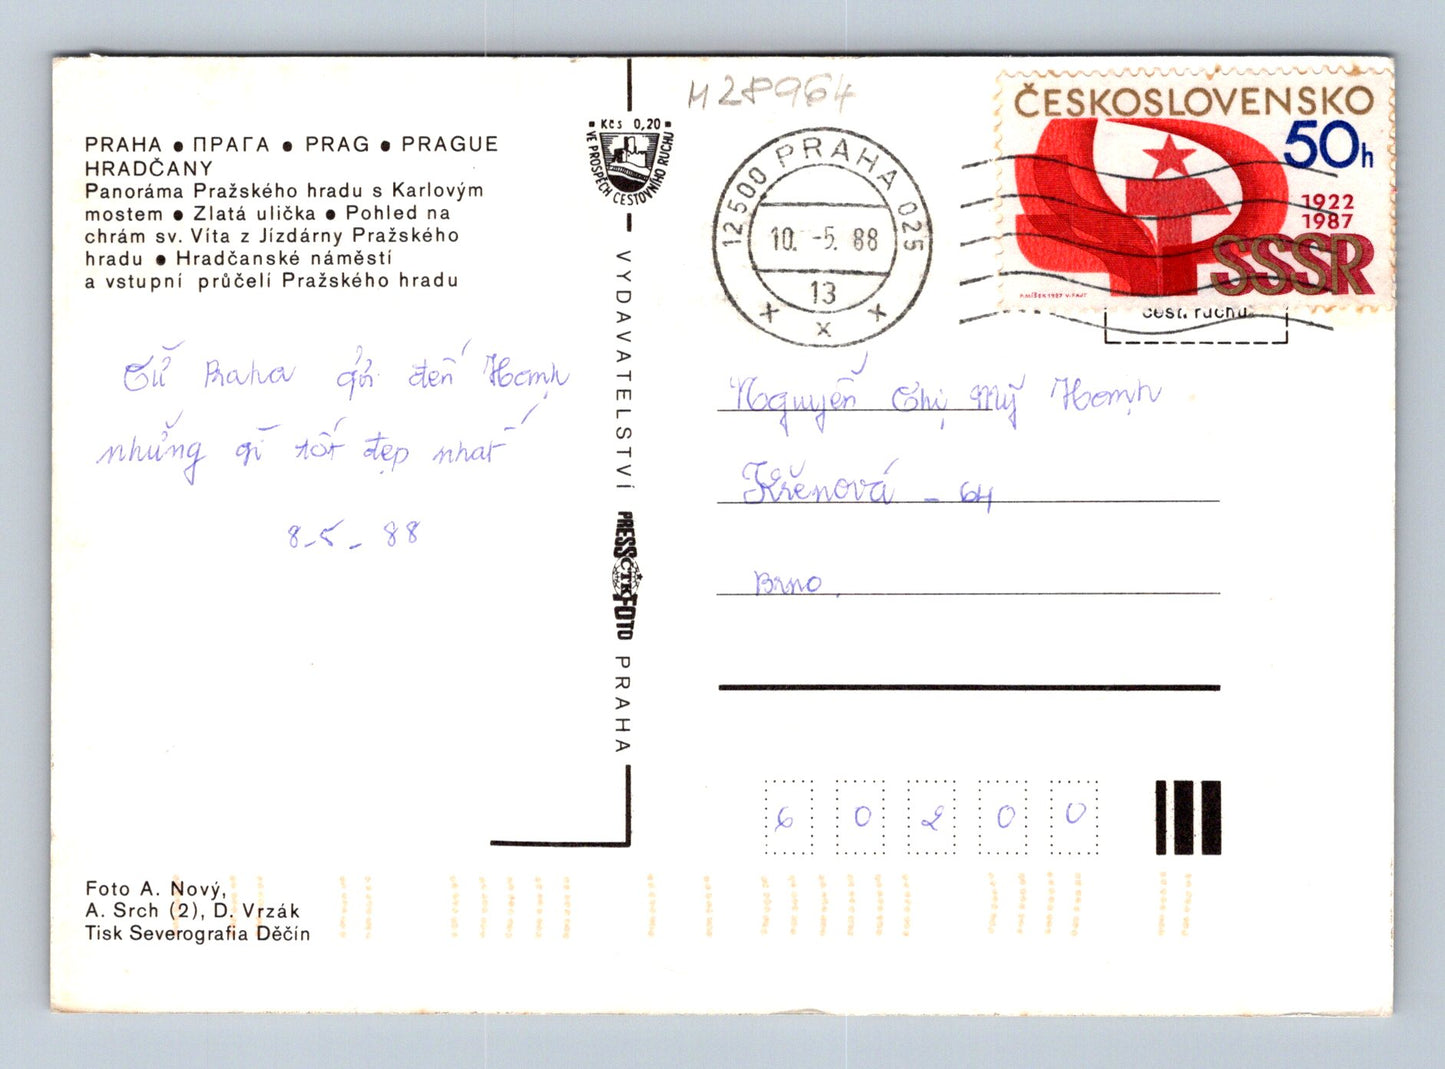 PRAHA ● ПРАГА ● PRAG ● PRAGUE
HRADČANY
Panoráma Pražského hradu s Karlovým
mostem ● Zlatá ulička ● Pohled na
chrám sv. Víta z Jízdárny Pražského
hradu ● Hradčanské náměstí
a vstupní průčelí Pražského hradu
Từ Praha gửi đến Hạnh
những gì tốt đẹp nhất
8-5-88
Foto A. Nový,
A. Srch (2), D. Vrzák
Tisk Severografia Děčín
Kčs 0,20
VE PROSPĚCH CESTOVNÍHO RUCHU
VYDAVATELSTVÍ PRESSFOTO PRAHA
ČTK
M 28964
12500 PRAHA 025
10. -5. 88
13
x x x
ČESKOSLOVENSKO
50h
1922
1987
SSSR
P.MÍŠEK 1987 V.FAJT
cest. ruchu
Nguyễn Thị Mỹ Hạnh
Křenová - 64
Brno.
6 0 2 0 0